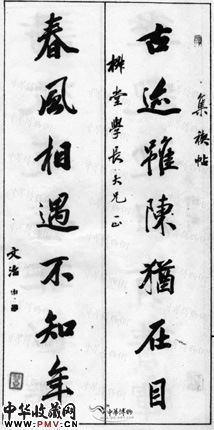 集禊帖
古迹雖陳猶在目
堂學長大兄正
春風相遇不知年
文治
中华博物
中华收藏网
www.PMV.cn